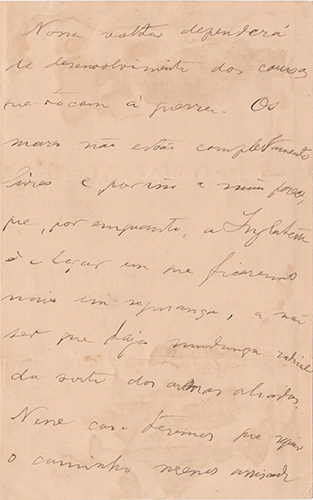 Nossa volta dependerá
do desenvolvimento das cousas
que tocam á guerra. Os
mares não estão completamente
livres e por isso
que, por emquanto, a Inglaterra
é o logar em que ficaremos
mais em segurança, a não
ser que haja mudança radical
da sorte das armas aliadas.
Nesse caso teremos que
o caminho menos